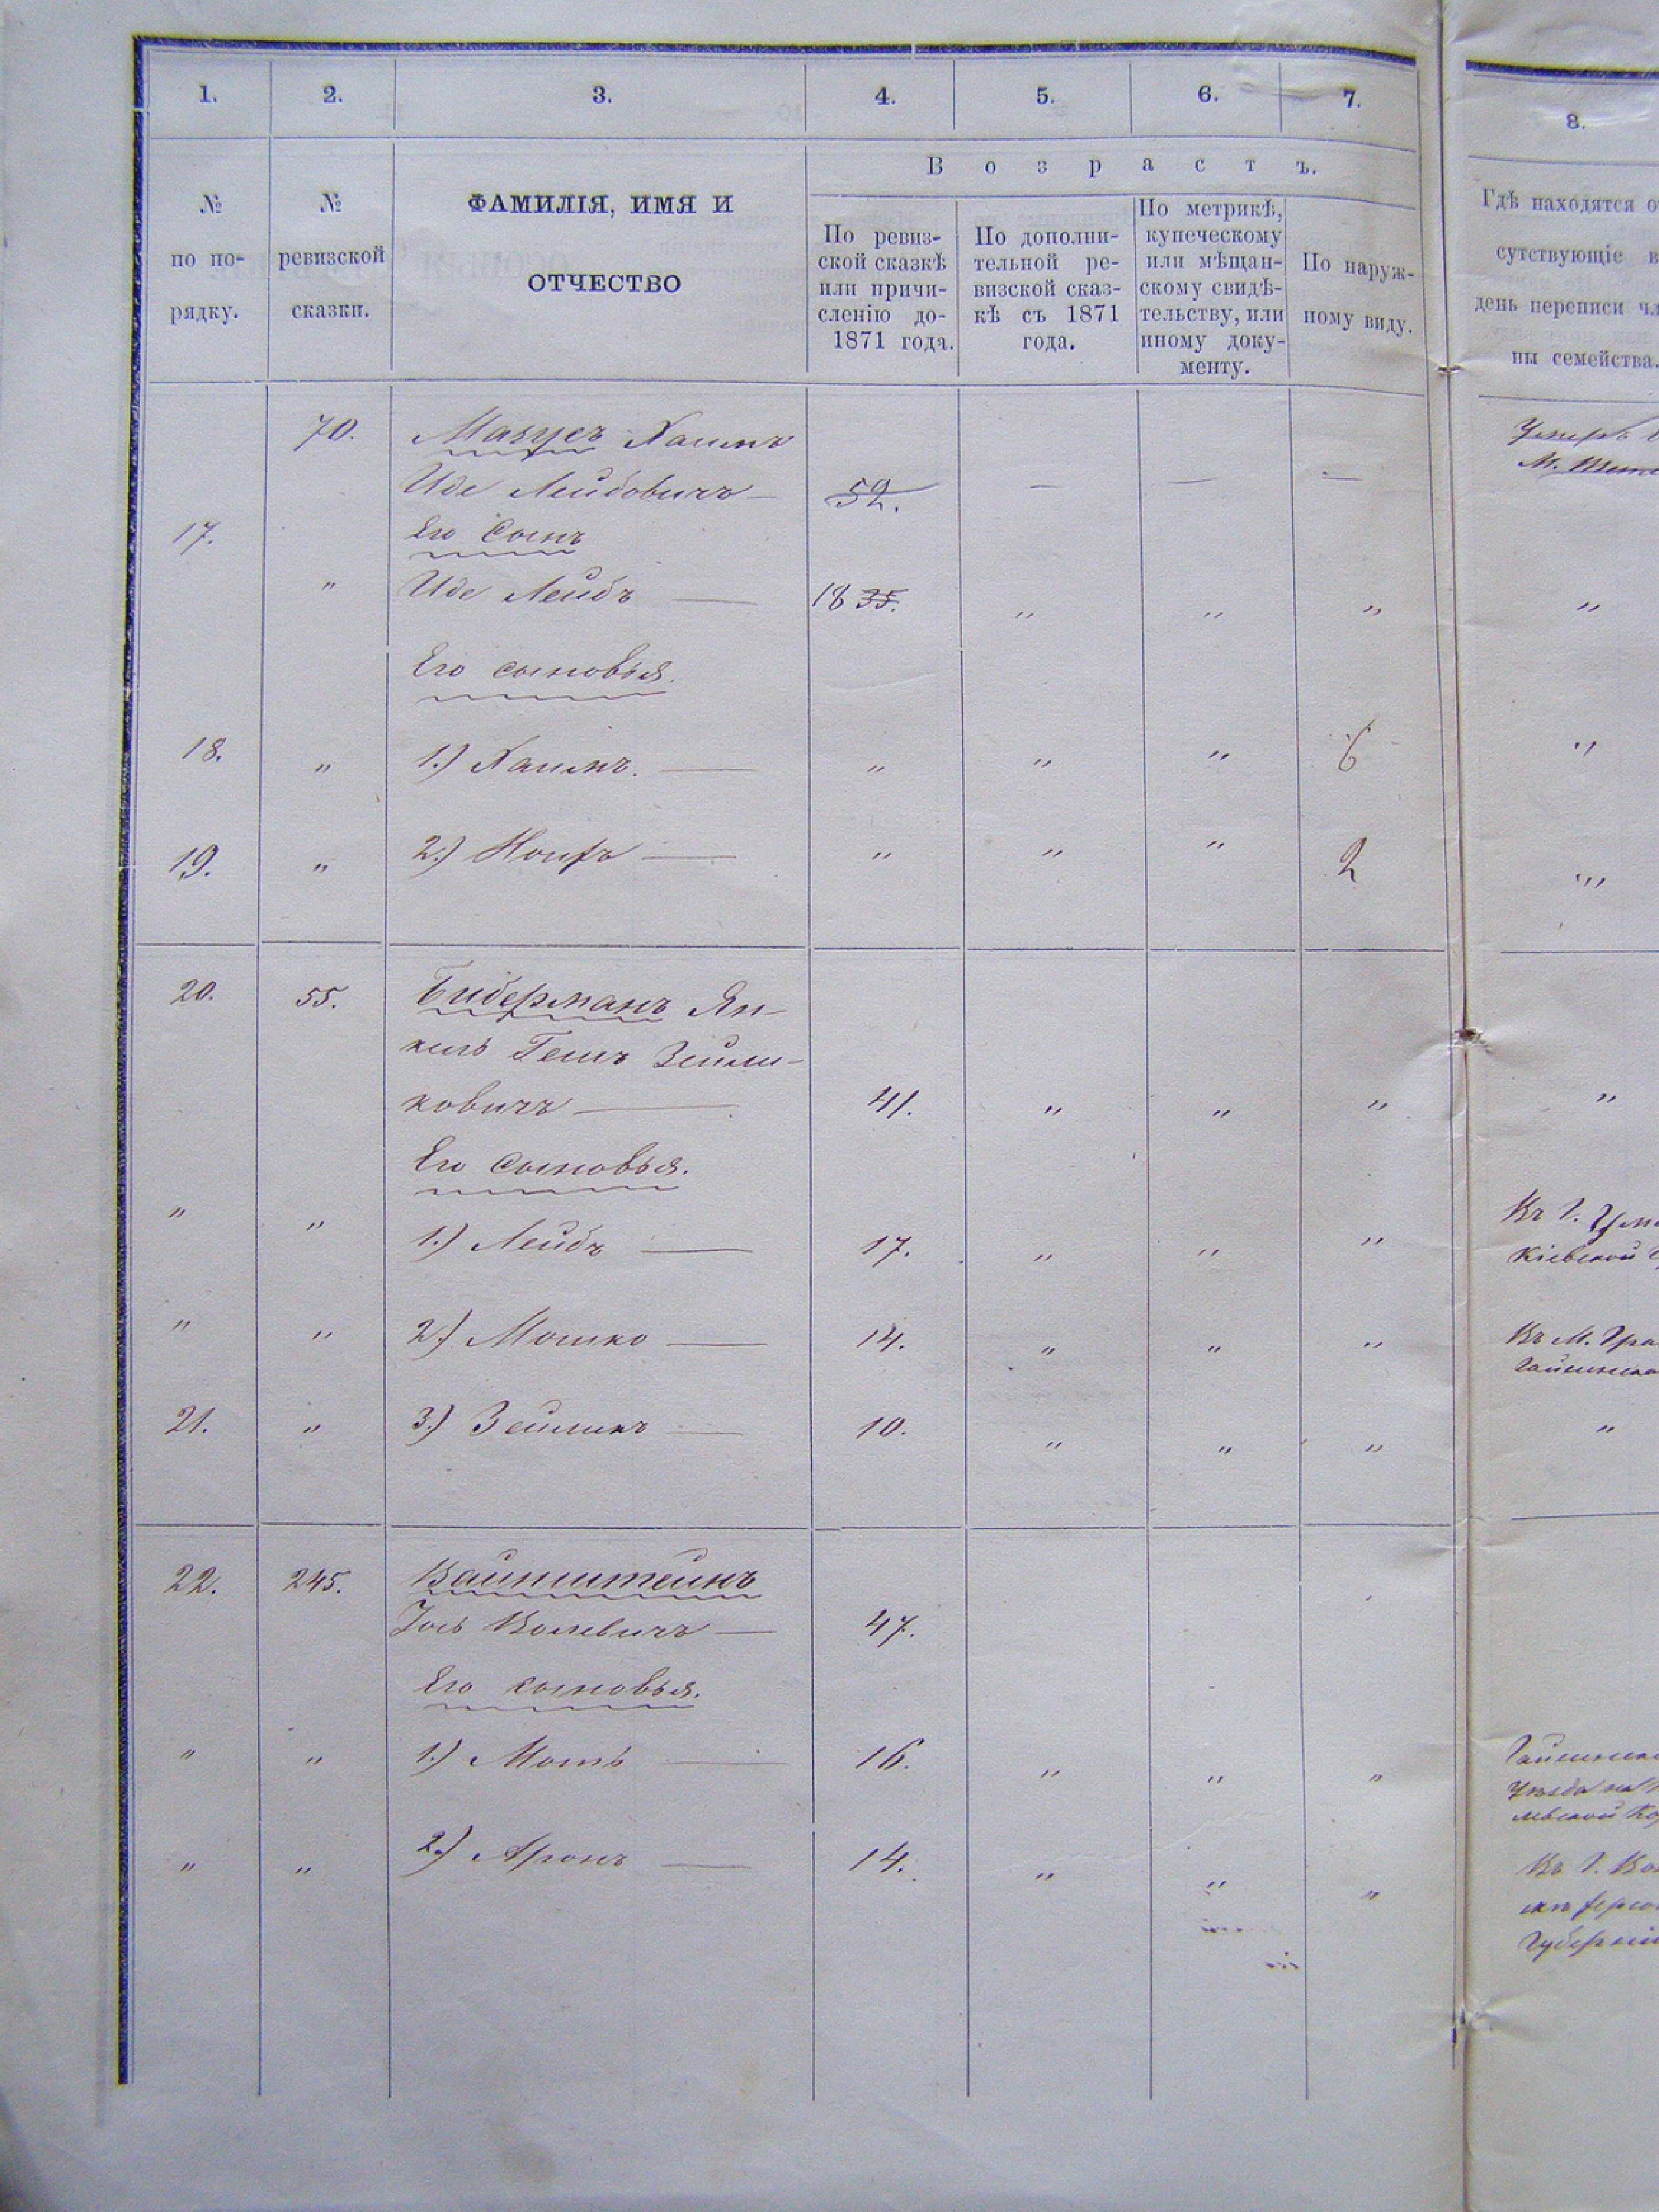 1. 2. 3. 4. 5. 6. 7. 8.
В о з р а с т ъ.
№ по по- рядку.
№ ревизской сказки.
ФАМИЛІЯ, ИМЯ И
ОТЧЕСТВО
По ревиз-
ской сказкѣ
или причи-
сленію до-
1871 года.
По дополни-
тельной ре-
визской сказ-
кѣ съ 1871
года.
По метрикѣ,
купеческому
или мѣщан-
скому свидѣ-
тельству, или
иному доку-
менту.
По наруж-
ному виду.
Гдѣ находятся о
сутствующіе в
день переписи чл
ны семейства.
70. Мазусъ Хаимъ Умеръ
Иде Лейбовичъ — 52. — — — М.
17. Его Сынъ
" Иде Лейбъ — 18 35. " " " "
Его сыновья.
18. " 1.) Хаимъ. — " " " 6 "
19. " 2.) — " " " 2 "
20. 55. Бидерманъ Ян-
кель Гешъ Зейли-
ковичъ — 41. " " " "
Его Сыновья.
" " 1.) Лейбъ — 17. " " " Въ Г. Ума
Кіевской
" " 2.) Мошко — 14. " " " Въ М. Гра
Гайсинска
21. " 3.) Зейликъ — 10. " " " "
22. 245. Вайнштейнъ
Іось Волевичъ — 47.
Его сыновья.
" " 1.) Моть — 16. " " " Гайсинска
Уѣзда на
" " 2.) Аронъ — 14. " " " Въ Г.
Херсо
Губерніи